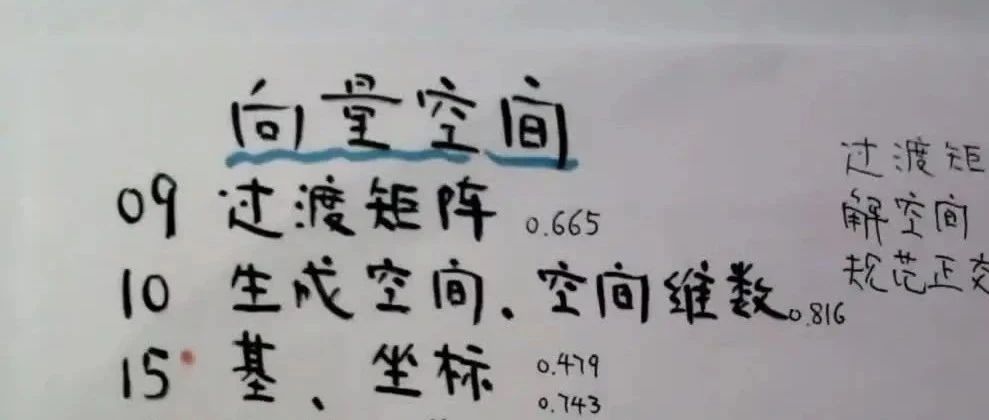 向量空间
09 过渡矩阵 0.665
10 生成空间、空间维数 0.816
15 基、坐标 0.479
0.743
过渡矩
解空间
规范正交